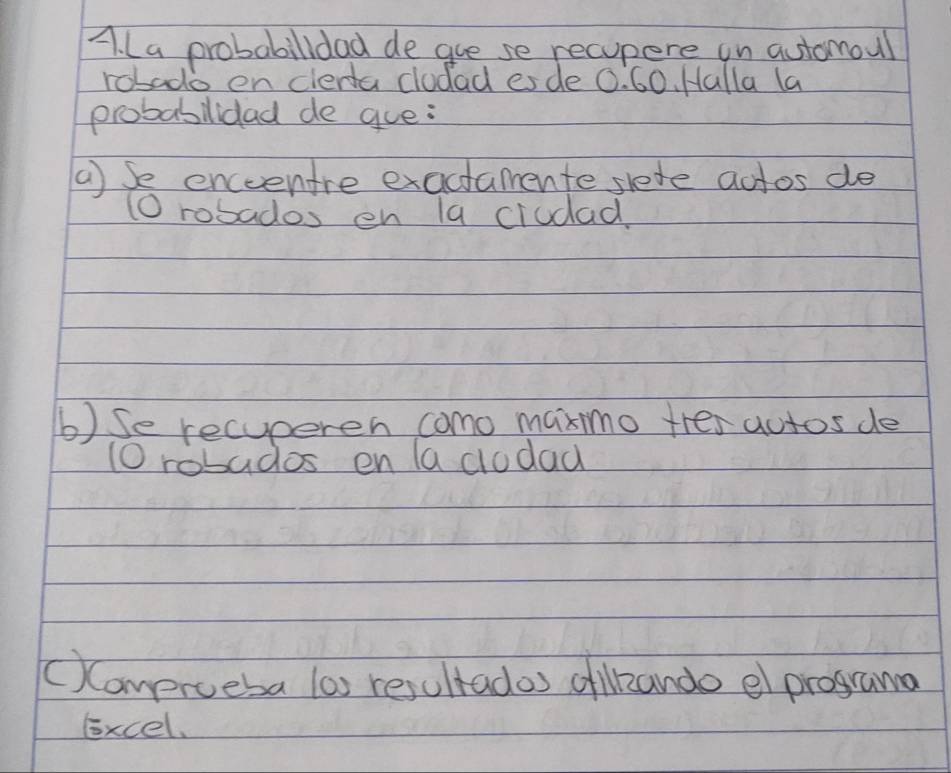 1. La probabilidad de que se recupere un automovil
robado en cierta ciudad es de 0.60. Halla la
probabilidad de que:
a) Se encuentre exactamente siete autos de
10 robados en la ciudad.
b) Se recuperen como maximo tres autos de
10 robados en la ciudad
c) Comprueba los resultados utilizando el programa
Excel.